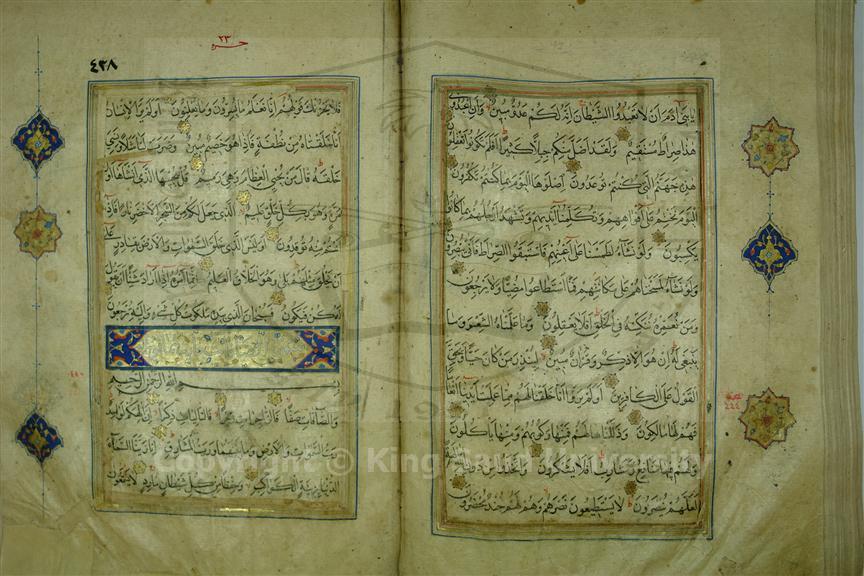 يا بني آدم ان لا تعبدوا الشيطان انه لكم عدو مبين وان اعبدوني
هذا صراط مستقيم ولقد اضل منكم جبلا كثيرا افلم تكونوا تعقلون
هذه جهنم التي كنتم توعدون اصلوها اليوم بما كنتم تكفرون
اليوم نختم على افواههم وتكلمنا ايديهم وتشهد ارجلهم بما كانوا
يكسبون ولو نشاء لطمسنا على اعينهم فاستبقوا الصراط فانى يبصرون
ولو نشاء لمسخناهم على مكانتهم فما استطاعوا مضيا ولا يرجعون
ومن نعمره ننكسه في الخلق افلا يعقلون وما علمناه الشعر وما
ينبغي له ان هو الا ذكر وقرآن مبين لينذر من كان حيا ويحق
القول على الكافرين اولم يروا انا خلقنا لهم مما عملت ايدينا انعاما
فهم لها مالكون وذللناها لهم فمنها ركوبهم ومنها ياكلون
ولهم فيها منافع ومشارب افلا يشكرون واتخذوا من دون الله
لعلهم ينصرون لا يستطيعون نصرهم وهم لهم جند محضرون
٤٣٨
٢٣
فلا يحزنك قولهم انا نعلم ما يسرون وما يعلنون اولم ير الانسان
انا خلقناه من نطفة فاذا هو خصيم مبين وضرب لنا مثلا ونسي
خلقه قال من يحيي العظام وهي رميم قل يحييها الذي انشأها اول
مرة وهو بكل خلق عليم الذي جعل لكم من الشجر الاخضر نارا فاذا
انتم منه توقدون اوليس الذي خلق السموات والارض بقادر على
ان يخلق مثلهم بلى وهو الخلاق العليم انما امره اذا اراد شيئا ان يقول
له كن فيكون فسبحان الذي بيده ملكوت كل شيء واليه ترجعون
بسم الله الرحمن الرحيم
والصافات صفا فالزاجرات زجرا فالتاليات ذكرا ان الهكم لواحد
رب السموات والارض وما بينهما ورب المشارق انا زينا السماء
الدنيا بزينة الكواكب وحفظا من كل شيطان مارد لا يسمعون
Copyright © King Saud University